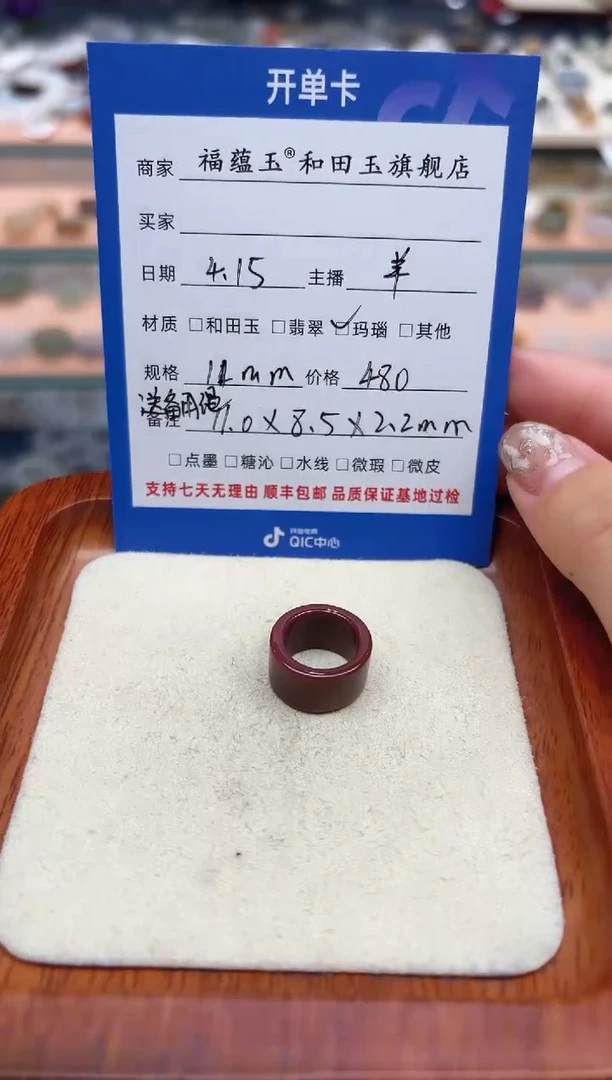 开单卡
商家 福蕴玉®和田玉旗舰店
买家
日期 4.15 主播 羊
材质 □和田玉 □翡翠 ☑玛瑙 □其他
规格 11mm 价格 480
送备用绳
备注 11.0×8.5×2.2mm
□点墨 □糖沁 □水线 □微瑕 □微皮
支持七天无理由 顺丰包邮 品质保证基地过检
抖音电商
QIC中心